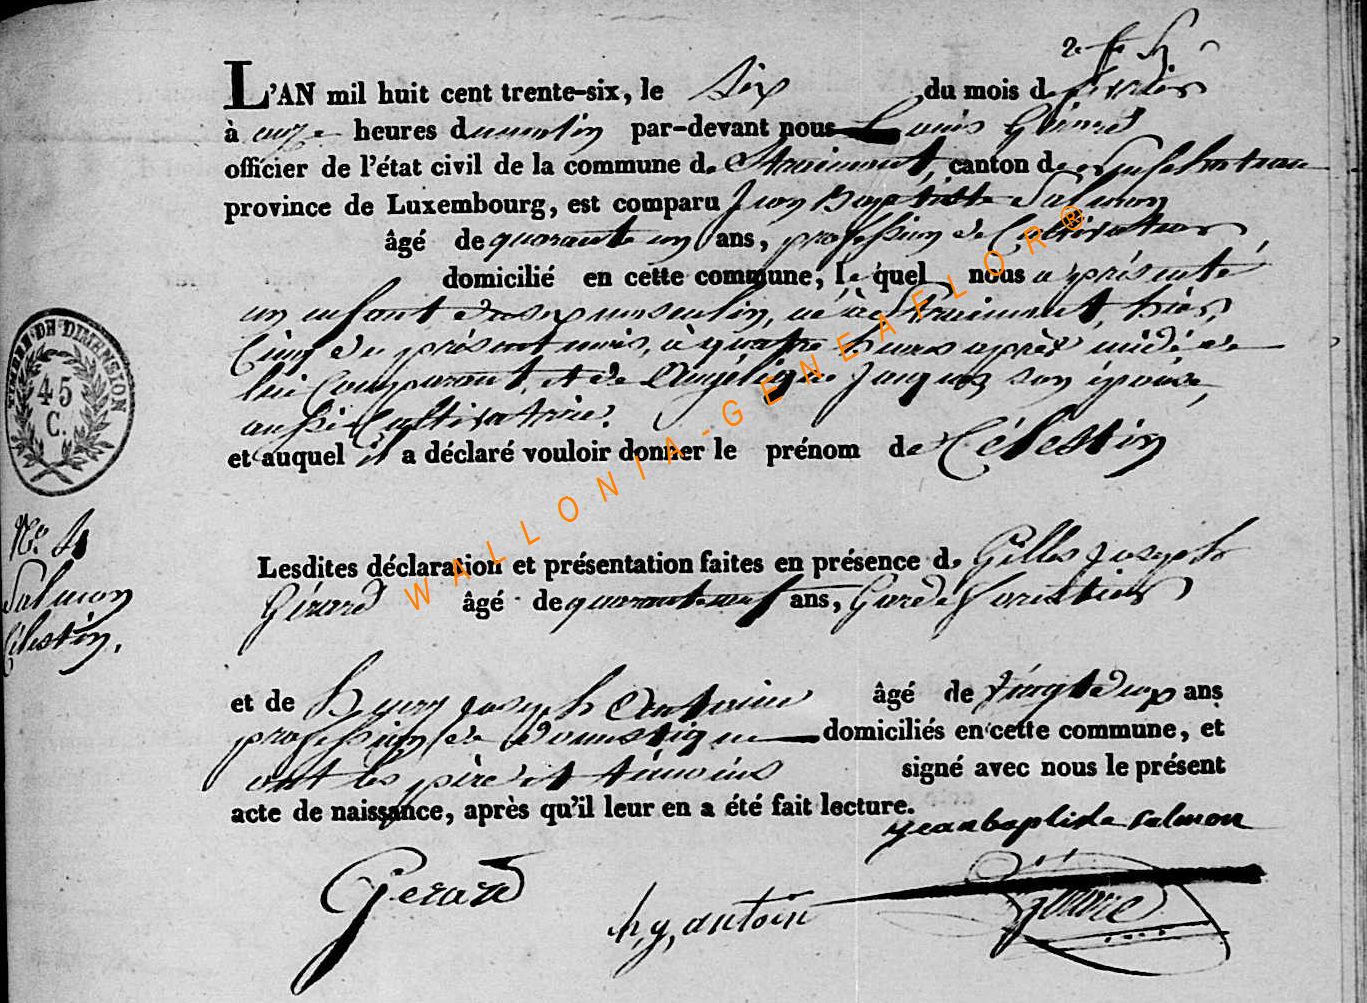 L'AN mil huit cent trente-six, le six du mois de février
à onze heures du matin par-devant nous Louis
officier de l'état civil de la commune de Straimont, canton de Neufchateau
province de Luxembourg, est comparu Jean Baptiste Salmon
âgé de quarante un ans, profession de Cultivateur
domicilié en cette commune, lequel nous a présenté
un enfant du sexe masculin, né à Straimont, hier,
Cinq du présent mois, à quatre heures après midi, de
lui Comparant, et de Angélique Jacques son épouse,
aussi Cultivatrice.
et auquel il a déclaré vouloir donner le prénom de Célestin
TIMBRE DE DIMENSION
45
C.
No. 4
Salmon
Célestin.
Lesdites déclaration et présentation faites en présence de Gilles Joseph
Gérard âgé de quarante neuf ans, Garde forestier
et de Henry Joseph Antoine âgé de vingt deux ans
profession de domestique domiciliés en cette commune, et
ont les père et témoins signé avec nous le présent
acte de naissance, après qu'il leur en a été fait lecture.
jean baptiste salmon
Gerard
h, j, antoin
WALLONIA-GENEAFLOR®